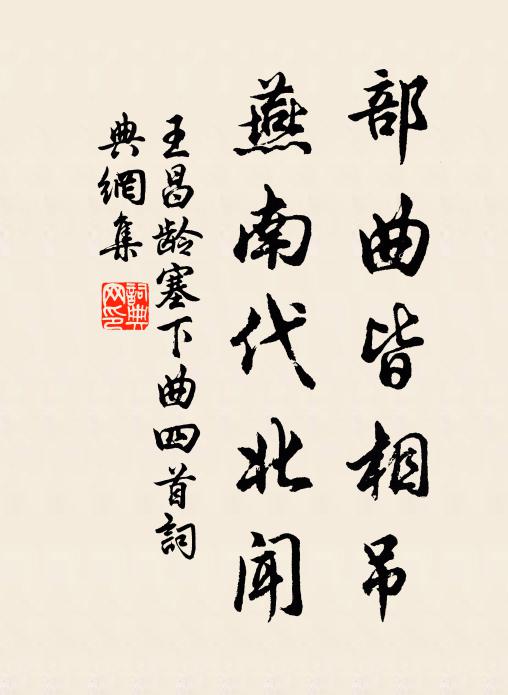 部曲皆相吊
燕南代北闻
王昌龄塞下曲四首詞
典網集
詞典
网印